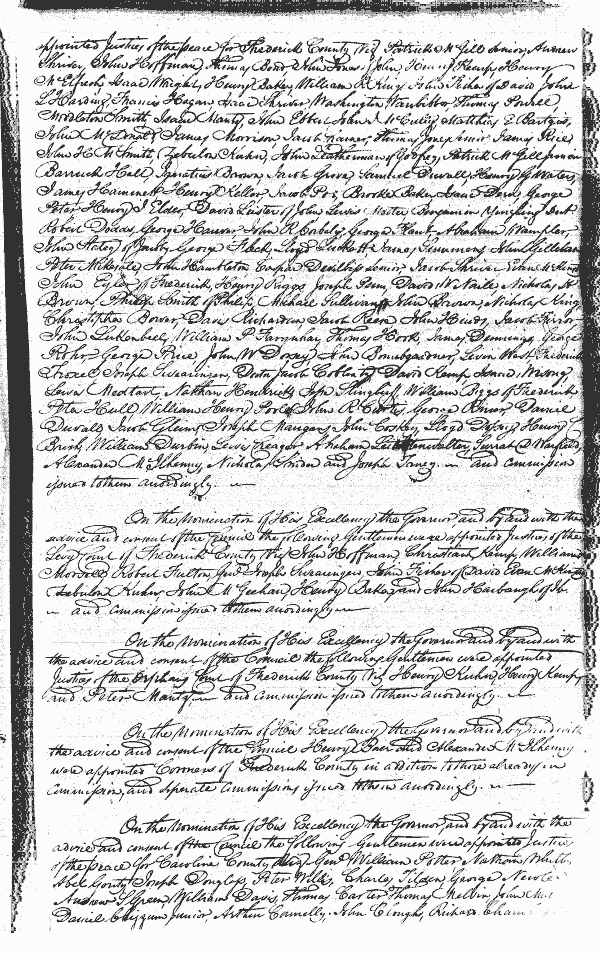 appointed Justices of the peace for Frederick County Viz Patrick McGill Senior, Andrew
Shriver, John Hoffman, Thomas John Jones of John, Henry Kemp, Henry
McElfresh, Isaac Wright, Henry Baker, William B King, John Fisher of David, John
L Harding, Francis Hagan, Isaac Shriver, Washington Vanbibber, Thomas Powell,
Middleton Smith, Isaac Mantz, John Ebbert, John McCully, Matthias E Bartgis,
John McDonald, James Morrison, Jacob Thomas Jones Senior, James Rice,
John H M Smith, Zebulon Kuhn, John Leatherman of Godfrey, Patrick McGill junior
Barruch Hall, Ignatius Brown, Jacob Grove, Samuel Duvall, Henry G Waters,
James Hammett, Henry Keller, Jacob Poe, Brooke Baker, Isaac Dern, George
Peter, Henry I Elder, David Leister of John, Lewis Benjamin Yingling,
Robert Dodds, George Hauver, John R Corbaly, George Abraham Wampler,
John Staley of George Flock, Lloyd Luckett, James Simmons, John Gilleland
Peter John Hambleton, Casper Devilbiss Senior, Jacob Shriver, Evan McKinstry
John Eyler of Frederick, Henry Riggs, Joseph Penn, David W Naill, Nicholas H
Brown, Philip Smith of Philip, Michael Sullivan, John Brown, Nicholas King,
Christopher Bower, Davis Richardson, Jacob Reese, John Hinds, Jacob Firor,
John Lukenbeel, William P Farquhar, Thomas Hook, James Demings, George
Rohr, George Rice, John W Dorsey, John Bomebgardner, Levin West, Frederick
Joseph Swearingen, Doctr Jacob Coblentz, David Kemp,
Lewis Medtart, Nathan Hendricks, Jesse Slingluff, William Biggs of Frederick,
Peter Hull, William Henry Poole, John R Curtis, George Bowen, Daniel
Duvall, Jacob Joseph Maugans, John Coskey, Lloyd Dorsey, Henry
Brish, William Durbin, Lewis Abraham Surrat D Warfield,
Alexander McIlhenny, Nicholas Snider and Joseph Taney. — and commission
issued to them accordingly. —
On the Nomination of His Excellency the Governor and by and with the
advice and consent of the Council the following Gentlemen were appointed Justices of the
Levy Court of Frederick County Viz John Hoffman, Christian Kemp, William
Morsell, Robert Fulton, Genl Joseph Swearingen, John Fisher of David, Evan McKinstry
Zebulon Kuhn, John McGechan, Henry Baker, and John Harbaugh of Jn.
— and commission issued to them accordingly —
On the Nomination of His Excellency the Governor and by and with
the advice and consent of the Council the following Gentlemen were appointed
Justices of the Orphans Court of Frederick County Viz Henry Kuhn, Henry Kemp
and Peter Mantz, — and commission issued to them accordingly. —
On the Nomination of His Excellency the Governor and by and with
the advice and consent of the Council Henry and Alexander McIlhenny
were appointed Coroners of Frederick County in addition to those already in
commission, and seperate Commissions issued to them accordingly. —
On the Nomination of His Excellency the Governor, and by and with the
advice and consent of the Council the following Gentlemen were appointed Justices
of the peace for Caroline County, Viz Genl William Potter, Nathan Whitby,
Abel Gootey, Joseph Douglass, Peter Willis, Charles Tilden, George Newlee
Andrew S Green, William Davis, Thomas Carter, Thomas Melvin, John
Daniel Chezum junior, Arthur Connelly, John Clough, Richard Cham